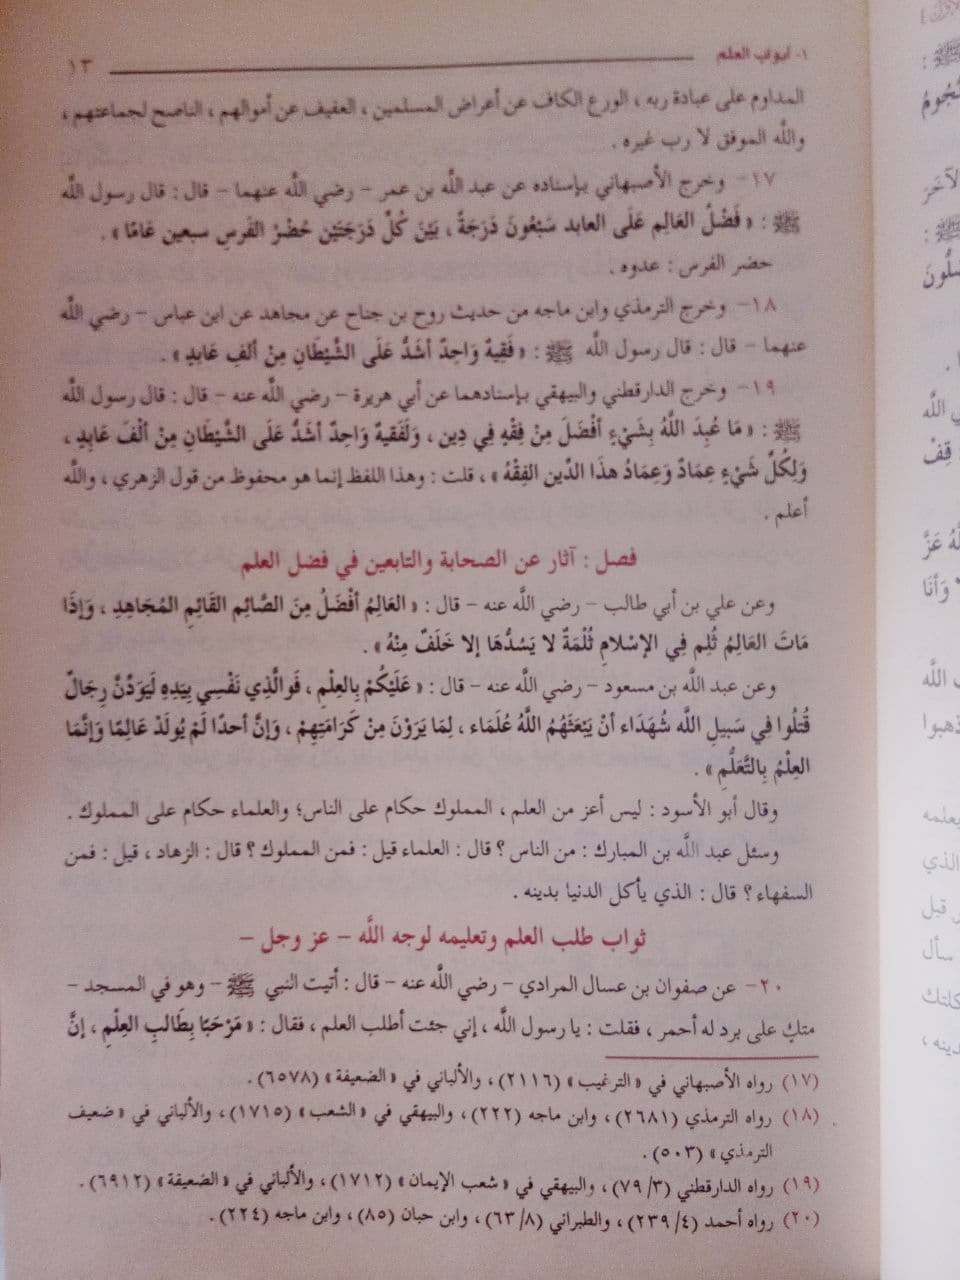 ١- أبواب العلم ١٣
المداوم على عبادة ربه ، الورع الكاف عن أعراض المسلمين ، العفيف عن أموالهم ، الناصح لجماعتهم ،
والله الموفق لا رب غيره .
١٧- وخرج الأصبهاني بإسناده عن عبد الله بن عمر - رضي الله عنهما - قال : قال رسول الله
ﷺ : « فَضْلُ العَالِمِ عَلَى العابد سَبْعُونَ دَرَجَةً ، بَيْنَ كُلِّ دَرَجَتَيْنِ حُضْرُ الفَرَسِ سبعين عَامًا » .
حضر الفرس : عدوه .
١٨- وخرج الترمذي وابن ماجه من حديث روح بن جناح عن مجاهد عن ابن عباس - رضي الله
عنهما - قال : قال رسول الله ﷺ : « فَقِيهٌ وَاحِدٌ أشَدُّ عَلَى الشَّيْطَانِ مِنْ ألفِ عَابِدٍ » .
١٩- وخرج الدارقطني والبيهقي بإسنادهما عن أبي هريرة - رضي الله عنه - قال : قال رسول الله
ﷺ : « مَا عُبِدَ اللهُ بِشَيْءٍ أفْضَلَ مِنْ فِقْهٍ فِي دِين ، وَلَفَقيهٌ وَاحِدٌ أشَدُّ عَلَى الشَّيْطَانِ مِنْ ألْفَ عَابِدٍ ،
وَلِكُلِّ شَيْءٍ عِمَادٌ وَعِمَادُ هذَا الدِّينِ الفِقْهُ » ، قلت : وهذا اللفظ إنما هو محفوظ من قول الزهري ، والله
أعلم .
فصل : آثار عن الصحابة والتابعين في فضل العلم
وعن علي بن أبي طالب - رضي الله عنه - قال : « العَالِمُ أفْضَلُ مِنَ الصَّائِمِ القَائِمِ المُجَاهِدِ ، وَإِذَا
مَاتَ العَالِمُ ثُلِم فِي الإسْلامِ ثُلْمَةٌ لا يَسُدُّهَا إلا خَلَفٌ مِنْهُ » .
وعن عبد الله بن مسعود - رضي الله عنه - قال : « عَلَيْكُمْ بِالعِلْمِ ، فَوالَّذِي نَفْسِي بِيَدِهِ لَيَوَدَّنَّ رِجَالٌ
قُتِلُوا فِي سَبِيلِ اللَّه شُهَدَاء أنْ يَبْعَثَهُمُ اللَّهُ عُلَمَاء ، لِمَا يَرَوْنَ مِنْ كَرَامَتِهِمْ ، وَإنَّ أحدًا لَمْ يُولَدْ عَالِمًا وَإنَّمَا
العِلْمُ بِالتَّعَلُّمِ » .
وقال أبو الأسود : ليس أعز من العلم ، المملوك حكام على الناس؛ والعلماء حكام على المملوك .
وسئل عبد الله بن المبارك : من الناس ؟ قال : العلماء قيل : فمن المملوك ؟ قال : الزهاد ، قيل : فمن
السفهاء ؟ قال : الذي يأكل الدنيا بدينه .
ثواب طلب العلم وتعليمه لوجه الله - عز وجل -
٢٠- عن صفوان بن عسال المرادي - رضي الله عنه - قال : أتيت النبي ﷺ - وهو في المسجد -
متكٍ على برد له أحمر ، فقلت : يا رسول الله ، إني جئت أطلب العلم ، فقال : « مَرْحَبًا بِطَالبِ العِلْمِ ، إنَّ
(١٧) رواه الأصبهاني في « الترغيب » (٢١١٦) ، والألباني في « الضعيفة » (٦٥٧٨) .
(١٨) رواه الترمذي (٢٦٨١) ، وابن ماجه (٢٢٢) ، والبيهقي في « الشعب » (١٧١٥) ، والألباني في « ضعيف
الترمذي » (٥٠٣) .
(١٩) رواه الدارقطني (٧٩/٣) ، والبيهقي في « شعب الإيمان » (١٧١٢) ، والألباني في « الضعيفة » (٦٩١٢) .
(٢٠) رواه أحمد (٢٣٩/٤) ، والطبراني (٦٣/٨) ، وابن حبان (٨٥) ، وابن ماجه (٢٢٤) .